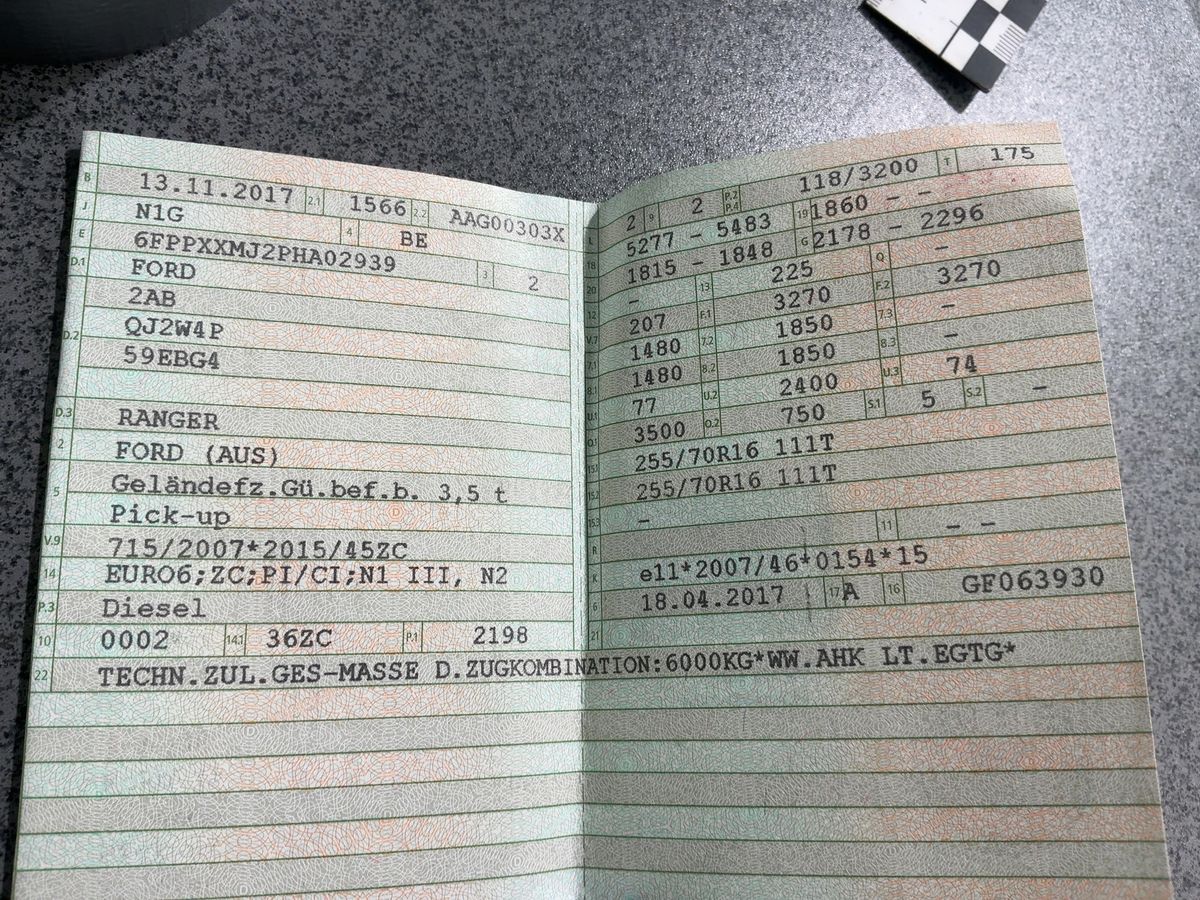 B 13.11.2017 2.1 1566 2.2 AAG00303X
J N1G 4 BE
E 6FPPXXMJ2PHA02939 3 2
D.1 FORD
2AB
D.2 QJ2W4P
59EBG4
D.3 RANGER
2 FORD (AUS)
5 Geländefz.Gü.bef.b. 3,5 t
Pick-up
V.9 715/2007*2015/45ZC
14 EURO6;ZC;PI/CI;N1 III, N2
P.3 Diesel
10 0002 14.1 36ZC P.1 2198
22 TECHN.ZUL.GES-MASSE D.ZUGKOMBINATION:6000KG*WW.AHK LT.EGTG*
L 2 9 2 P.2 P.4 118/3200 T 175
18 5277 - 5483 19 1860 - -
20 1815 - 1848 G 2178 - 2296
12 - 13 225 Q -
V.7 207 F.1 3270 F.2 3270
7.1 1480 7.2 1850 7.3 -
8.1 1480 8.2 1850 8.3 -
U.1 77 U.2 2400 U.3 74
O.1 3500 O.2 750 S.1 5 S.2 -
15.1 255/70R16 111T
15.2 255/70R16 111T
15.3 -
R 11 - -
K e11*2007/46*0154*15
6 18.04.2017 17 A 16 GF063930
21